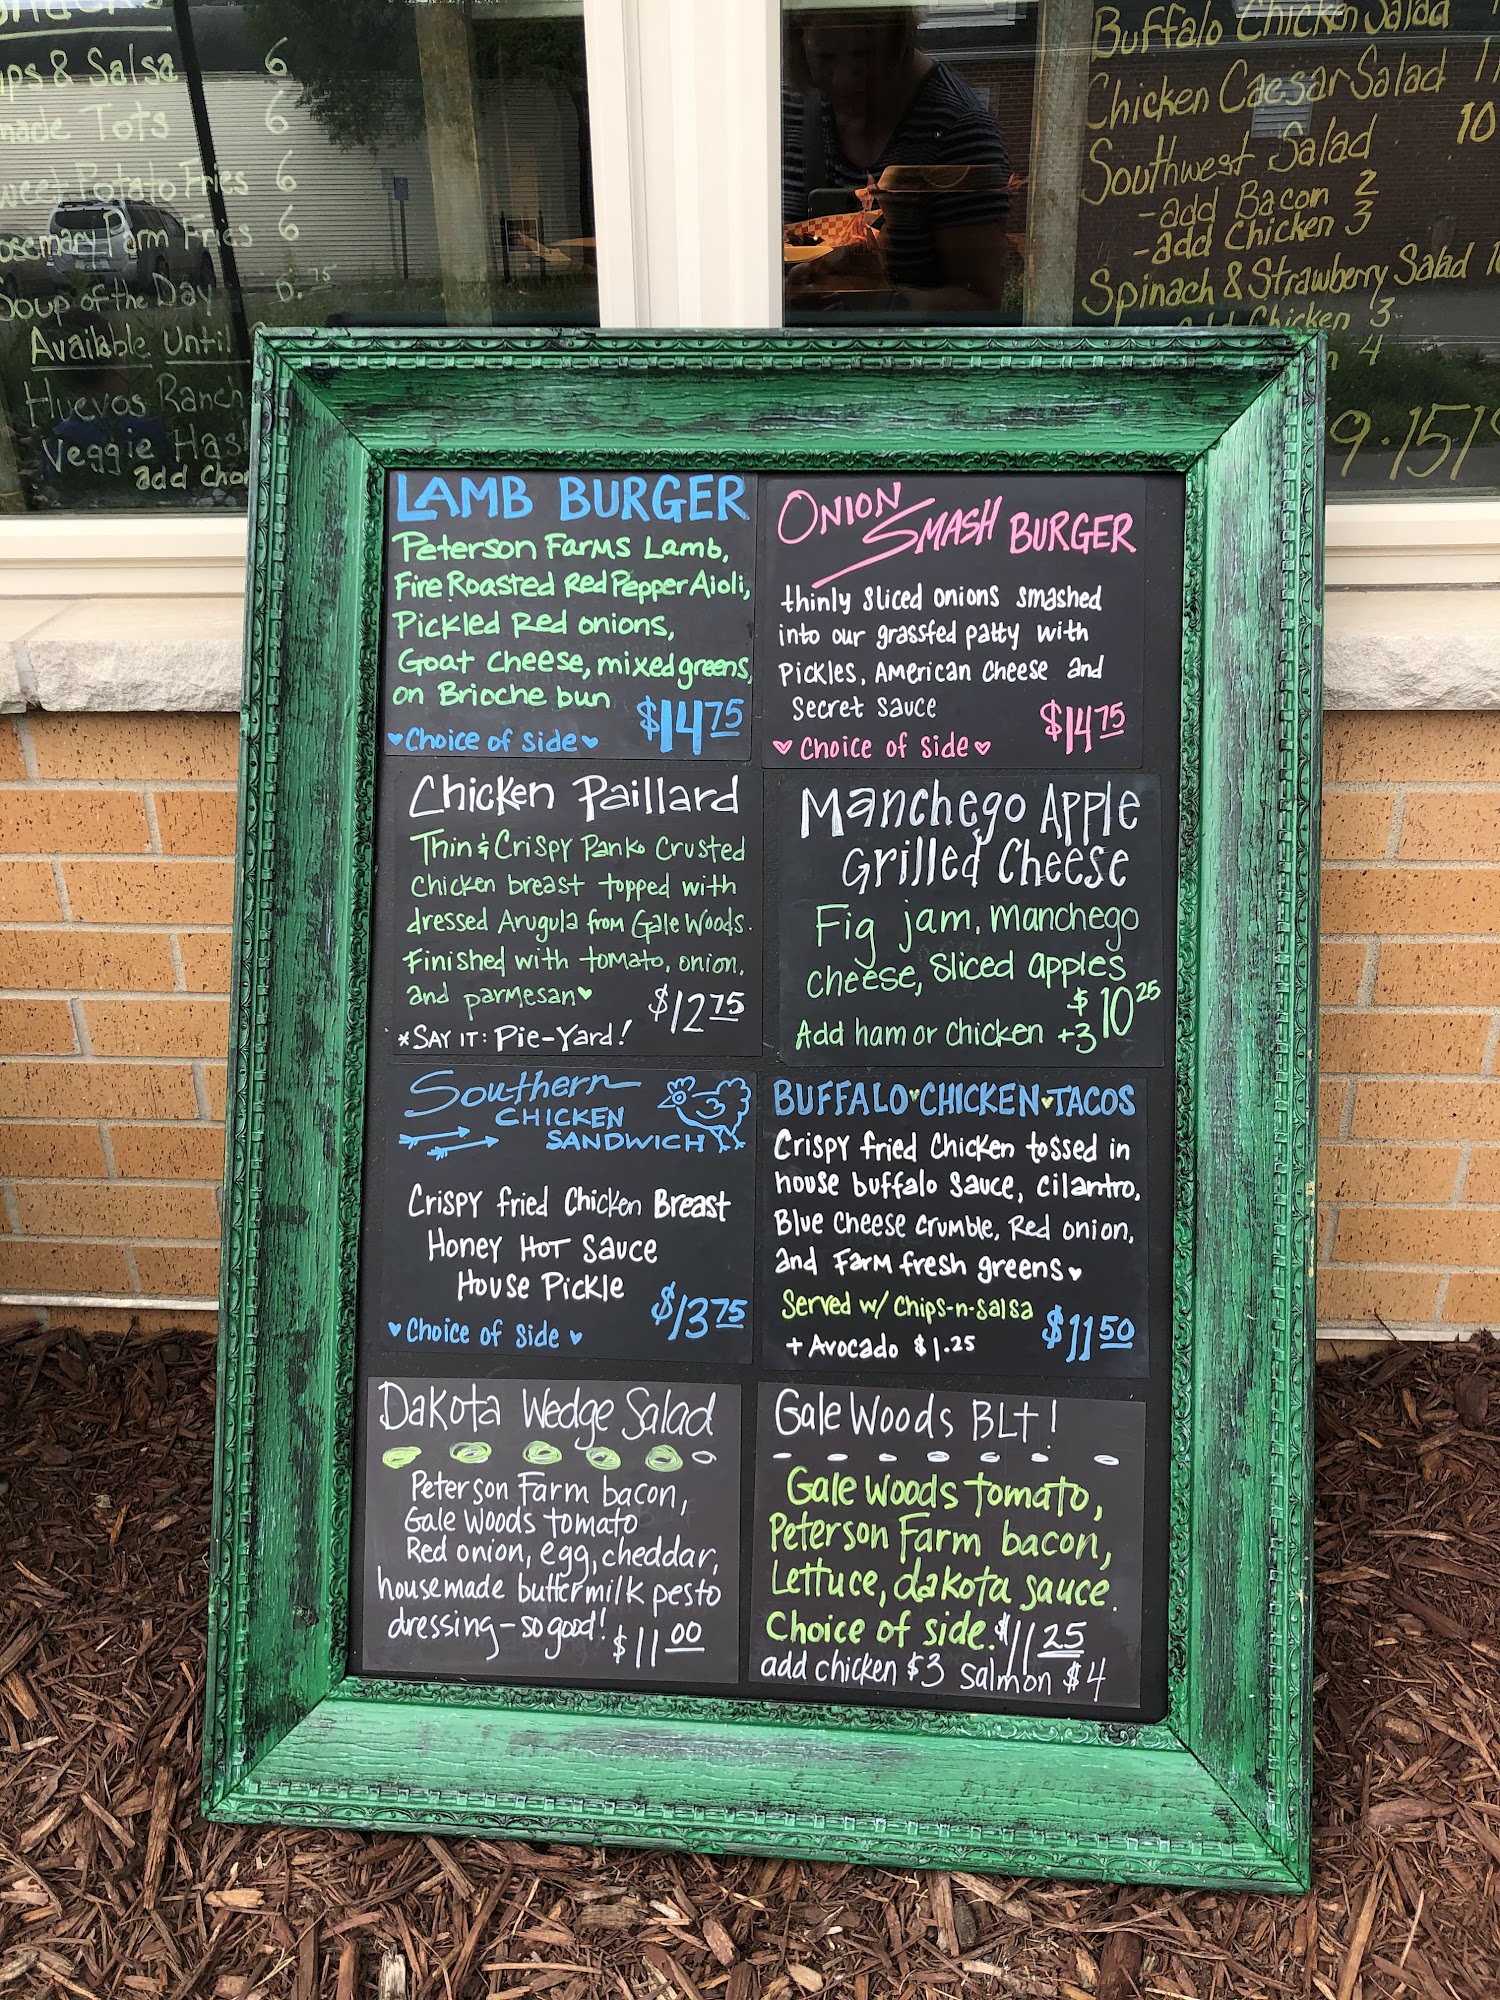 & Salsa 6
Tots 6
Potato Fries 6
Parm Fries 6
Soup of the Day 6.75
Available Until
Huevos
Veggie
add
Buffalo Chicken Salad
Chicken Caesar Salad
Southwest Salad 10
-add Bacon 2
-add Chicken 3
Spinach & Strawberry Salad
Chicken 3
4
LAMB BURGER
Peterson Farms Lamb,
Fire Roasted Red Pepper Aioli,
Pickled Red onions,
Goat Cheese, mixed greens,
on Brioche bun $14.75
♥Choice of side♥
ONION
SMASH BURGER
thinly sliced onions smashed
into our grassfed patty with
Pickles, American Cheese and
Secret Sauce $14.75
♥ Choice of side ♥
Chicken Paillard
Thin & Crispy Panko Crusted
Chicken breast topped with
dressed Arugula from Gale Woods.
Finished with tomato, onion,
and parmesan♥ $12.75
*SAY IT: Pie-Yard!
Manchego Apple
Grilled Cheese
Fig jam, Manchego
cheese, sliced apples
$10.25
Add ham or chicken +3
Southern
CHICKEN
SANDWICH
Crispy fried Chicken Breast
Honey Hot Sauce
House Pickle
$13.75
♥ Choice of side ♥
BUFFALO♥CHICKEN♥TACOS
Crispy fried Chicken tossed in
house buffalo sauce, cilantro,
Blue Cheese crumble, Red onion,
and Farm fresh greens♥
Served w/ Chips-n-Salsa
+ Avocado $1.25 $11.50
Dakota Wedge Salad
Peterson Farm bacon,
Gale Woods tomato
Red onion, egg, cheddar,
housemade buttermilk pesto
dressing - so good! $11.00
Gale Woods BLT!
Gale Woods tomato,
Peterson Farm bacon,
Lettuce, dakota sauce.
Choice of side. $11.25
add chicken $3 salmon $4